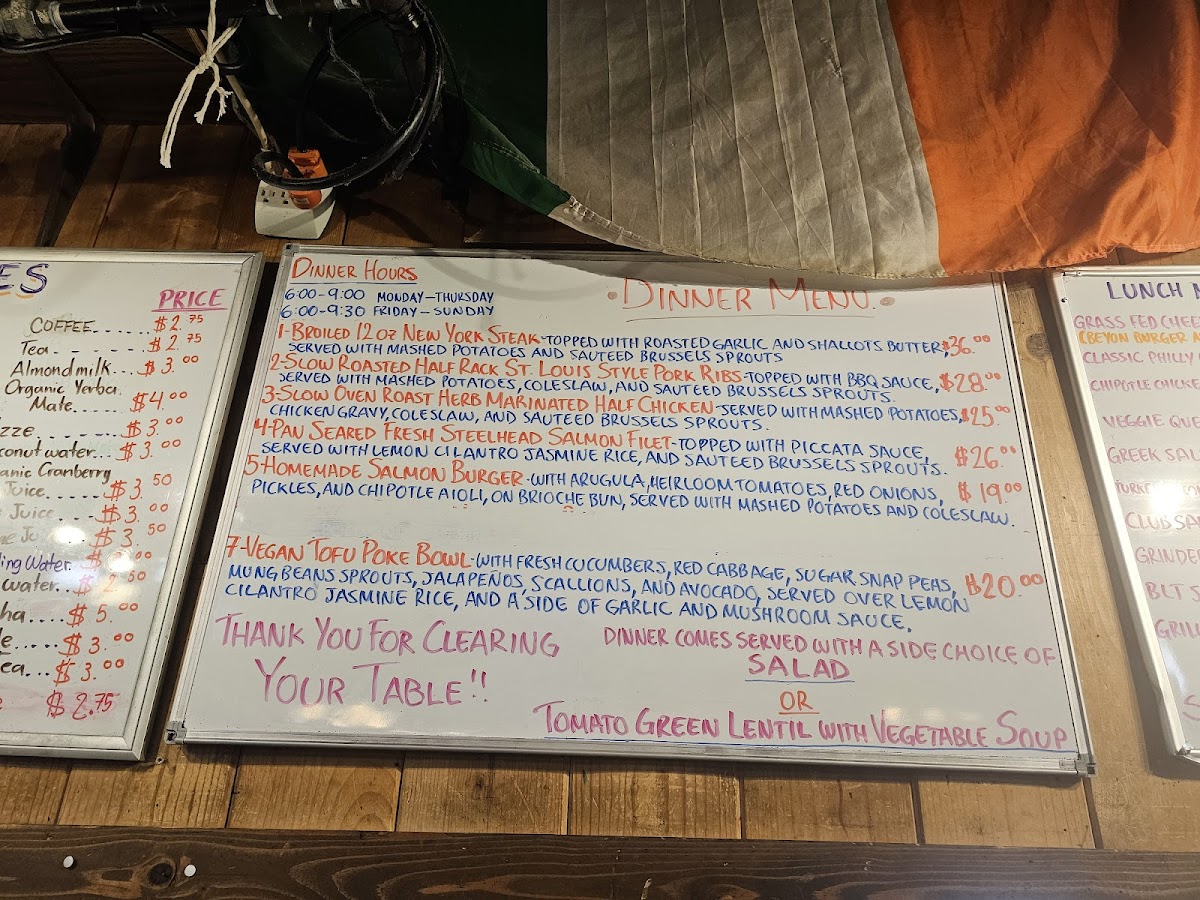 ES
PRICE
COFFEE...... $2.75
Tea........ $2.75
Almond milk... $3.00
Organic Yerba
Mate...... $4.00
$3.00
conut water... $3.00
anic Cranberry
Juice....... $3.50
Juice.... $3.00
$3.50
ling Water
water.... $2.50
ha.... $5.00
le..... $3.00
ea... $3.00
$2.75
DINNER HOURS
6:00-9:00 MONDAY-THURSDAY
6:00-9:30 FRIDAY-SUNDAY
DINNER MENU
1-BROILED 12 OZ NEW YORK STEAK-TOPPED WITH ROASTED GARLIC AND SHALLOTS BUTTER, $36.00
SERVED WITH MASHED POTATOES AND SAUTEED BRUSSELS SPROUTS
2-SLOW ROASTED HALF RACK ST. LOUIS STYLE PORK RIBS-TOPPED WITH BBQ SAUCE, $28.00
SERVED WITH MASHED POTATOES, COLESLAW, AND SAUTEED BRUSSELS SPROUTS.
3-SLOW OVEN ROAST HERB MARINATED HALF CHICKEN-SERVED WITH MASHED POTATOES, $25.00
CHICKEN GRAVY, COLESLAW, AND SAUTEED BRUSSELS SPROUTS.
4-PAN SEARED FRESH STEELHEAD SALMON FILET-TOPPED WITH PICCATA SAUCE,
SERVED WITH LEMON CILANTRO JASMINE RICE, AND SAUTEED BRUSSELS SPROUTS. $26.00
5-HOMEMADE SALMON BURGER-WITH ARUGULA, HEIRLOOM TOMATOES, RED ONIONS, $19.00
PICKLES, AND CHIPOTLE AIOLI, ON BRIOCHE BUN, SERVED WITH MASHED POTATOES AND COLESLAW.
7-VEGAN TOFU POKE BOWL-WITH FRESH CUCUMBERS, RED CABBAGE, SUGAR SNAP PEAS, $20.00
MUNG BEANS SPROUTS, JALAPEÑOS, SCALLIONS, AND AVOCADO, SERVED OVER LEMON
CILANTRO JASMINE RICE, AND A SIDE OF GARLIC AND MUSHROOM SAUCE.
THANK YOU FOR CLEARING
YOUR TABLE!!
DINNER COMES SERVED WITH A SIDE CHOICE OF
SALAD
OR
TOMATO GREEN LENTIL WITH VEGETABLE SOUP
LUNCH M
GRASS FED CHEE
(BEYON BURGER A
CLASSIC PHILLY
CHIPOTLE CHICKE
VEGGIE QUE
GREEK SAL
CLUB SA
GRINDE
BLT
GRIL